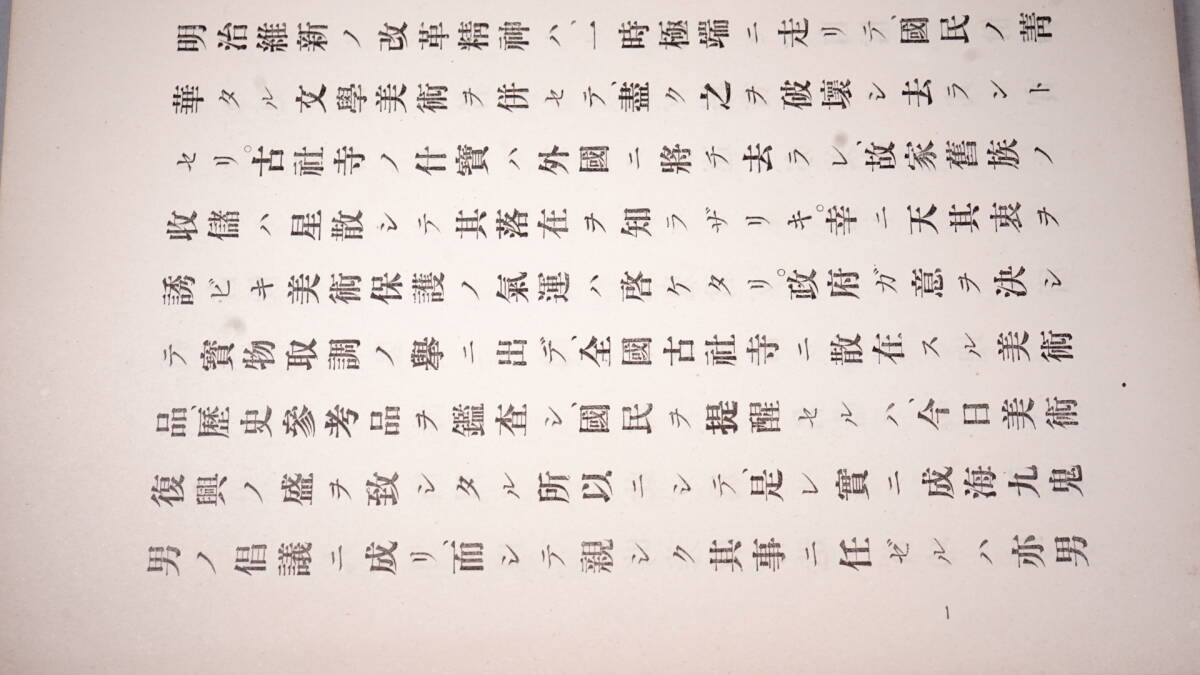 明治維新ノ改革精神ハ、一時極端ニ走リテ、國民ノ菁
華タル文學美術ヲ併セテ、盡ク之ヲ破壞シ去ラント
セリ。古社寺ノ什寶ハ外國ニ將チ去ラレ、故家舊族ノ
收儲ハ星散シテ其落在ヲ知ラザリキ。幸ニ天其衷ヲ
誘ビキ美術保護ノ氣運ハ啓ケタリ。政府ガ意ヲ決シ
テ寶物取調ノ擧ニ出デ、全國古社寺ニ散在スル美術
品、歷史參考品ヲ鑑査シ、國民ヲ提醒セルハ、今日美術
復興ノ盛ヲ致シタル所以ニシテ、是レ實ニ成海九鬼
男ノ倡議ニ成リ、而シテ親シク其事ニ任ゼルハ亦男
一